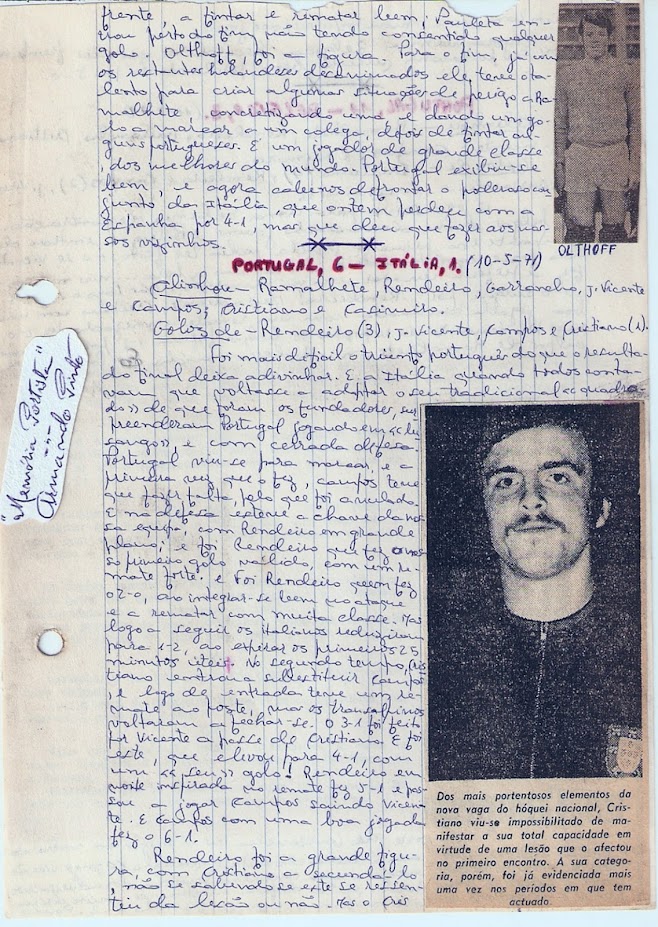 frente, a fintar e rematar bem, Pauleta en-
trou perto do fim não tendo consentido qualquer
golo. Olthoff, foi a figura. Para o fim, já com
os restantes holandeses desanimados ele, teve o ta-
lento para criar algumas situações de perigo a Ra-
malhete, concretizando uma e dando um go-
lo a marcar a um colega, depois de fintar al-
guns portugueses. É um jogador de grande classe
, dos melhores do mundo. Portugal exibiu-se
bem, e agora cabe-nos defrontar o poderoso con
junto da Itália, que ontem perdeu com a
Espanha por 4-1, mas que deu que fazer aos nos-
sos vizinhos.
OLTHOFF
PORTUGAL, 6 - ITÁLIA, 1. (10-5-71)
Alinharam - Ramalhete, Rendeiro, Garrancho, J. Vicente
e Campos; Cristiano e Casimiro.
Golos de - Rendeiro (3), J. Vicente, Campos e Cristiano (1).
Foi mais difícil o triunfo português do que o resulta-
do final deixa adivinhar. E a Itália quando todos conta-
vam que voltasse a adoptar o seu tradicional «quadra-
do» de que foram os fundadores, sur
preenderam Portugal jogando em «lo
sango» e com cerrada defesa.
Portugal viu-se para marcar, e a
primeira vez que o fez, Campos teve
que fazer falta, pelo que foi anulado.
E na defesa esteve a chave da nos
sa equipa, com Rendeiro em grande
plano; e foi Rendeiro que fez o nos
so primeiro golo válido, com um re-
mate forte. E foi Rendeiro quem fez
o 2-0, ao integrar-se bem no ataque
e a rematar com muita classe. Mas
logo a seguir os italianos reduziram
para 1-2, ao expirar os primeiros 25
minutos úteis. No segundo tempo, Cris
tiano entrou a substituir Campos
, e logo de entrada teve um re-
mate ao poste, mas os transalpinos
voltaram a fechar-se. O 3-1 foi feito
por Vicente a passe de Cristiano. E foi
este, que elevou para 4-1, com
um «seu» golo! Rendeiro em
noite inspirada no remate fez 5-1 e pas
sou a jogar Campos saindo Vicen
te. E Campos com uma boa jogada
fez o 6-1.
Rendeiro foi a grande figu-
ra, com Cristiano a secundá-lo
, não se sabendo se este se ressen-
tiu da lesão ou não. Mas o Cris
"Memória Portista"
Armando Pinto
Dos mais portentosos elementos da
nova vaga do hóquei nacional, Cris-
tiano viu-se impossibilitado de ma-
nifestar a sua total capacidade em
virtude de uma lesão que o afectou
no primeiro encontro. A sua catego-
ria, porém, foi já evidenciada mais
uma vez nos períodos em que tem
actuado.